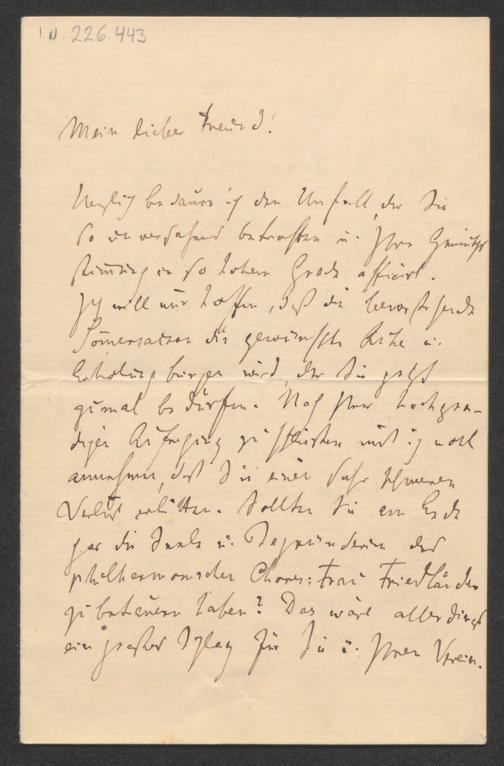 I.N. 226.443
Mein lieber Freund!
Herzlich bedaure ich den Unfall, der Sie
so unversehens betroffen u. Ihre Gemüths¬
stimmung in so hohem Grade afficirt.
Ich will nur hoffen, daß die bevorstehende
Sommersaison die gewünschte Ruhe u.
Erholung bringen wird, der Sie jetzt
zumal bedürfen. Nach Ihrer
Aufregung zu schließen muß ich wohl
annehmen, daß Sie einen sehr schweren
Verlust erlitten. Sollten Sie am Ende
gar die Seele u. Begründerin des
philharmonischen Chores: Frau Friedländer
zu betrauern haben? Das wäre allerdings
ein großer Schlag für Sie u. Ihren Verein.